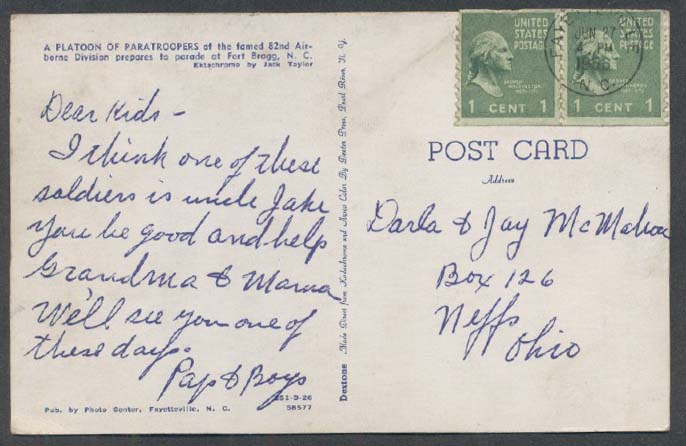 A PLATOON OF PARATROOPERS of the famed 82nd Air-
borne Division prepares to parade at Fort Bragg, N. C.
Ektachrome by Jack Taylor
Dear Kids -
I think one of these
soldiers is uncle Jake
you be good and help
Grandma & Mama
We'll see you one of
these days.
Pap & Boys
Pub. by Photo Center, Fayetteville, N. C.
251-D-26
58577
Dextone
Made Direct from Kodachrome and Ansco Color By Dexter Press, Pearl River, N. Y.
UNITED
STATES
POSTAGE
GEORGE
WASHINGTON
1 CENT 1
UNITED
STATES
POSTAGE
GEORGE
WASHINGTON
1 CENT 1
JUN 27
4 PM
1956
N. C.
POST CARD
Address
Darla & Jay McMahon
Box 126
Neffs
Ohio